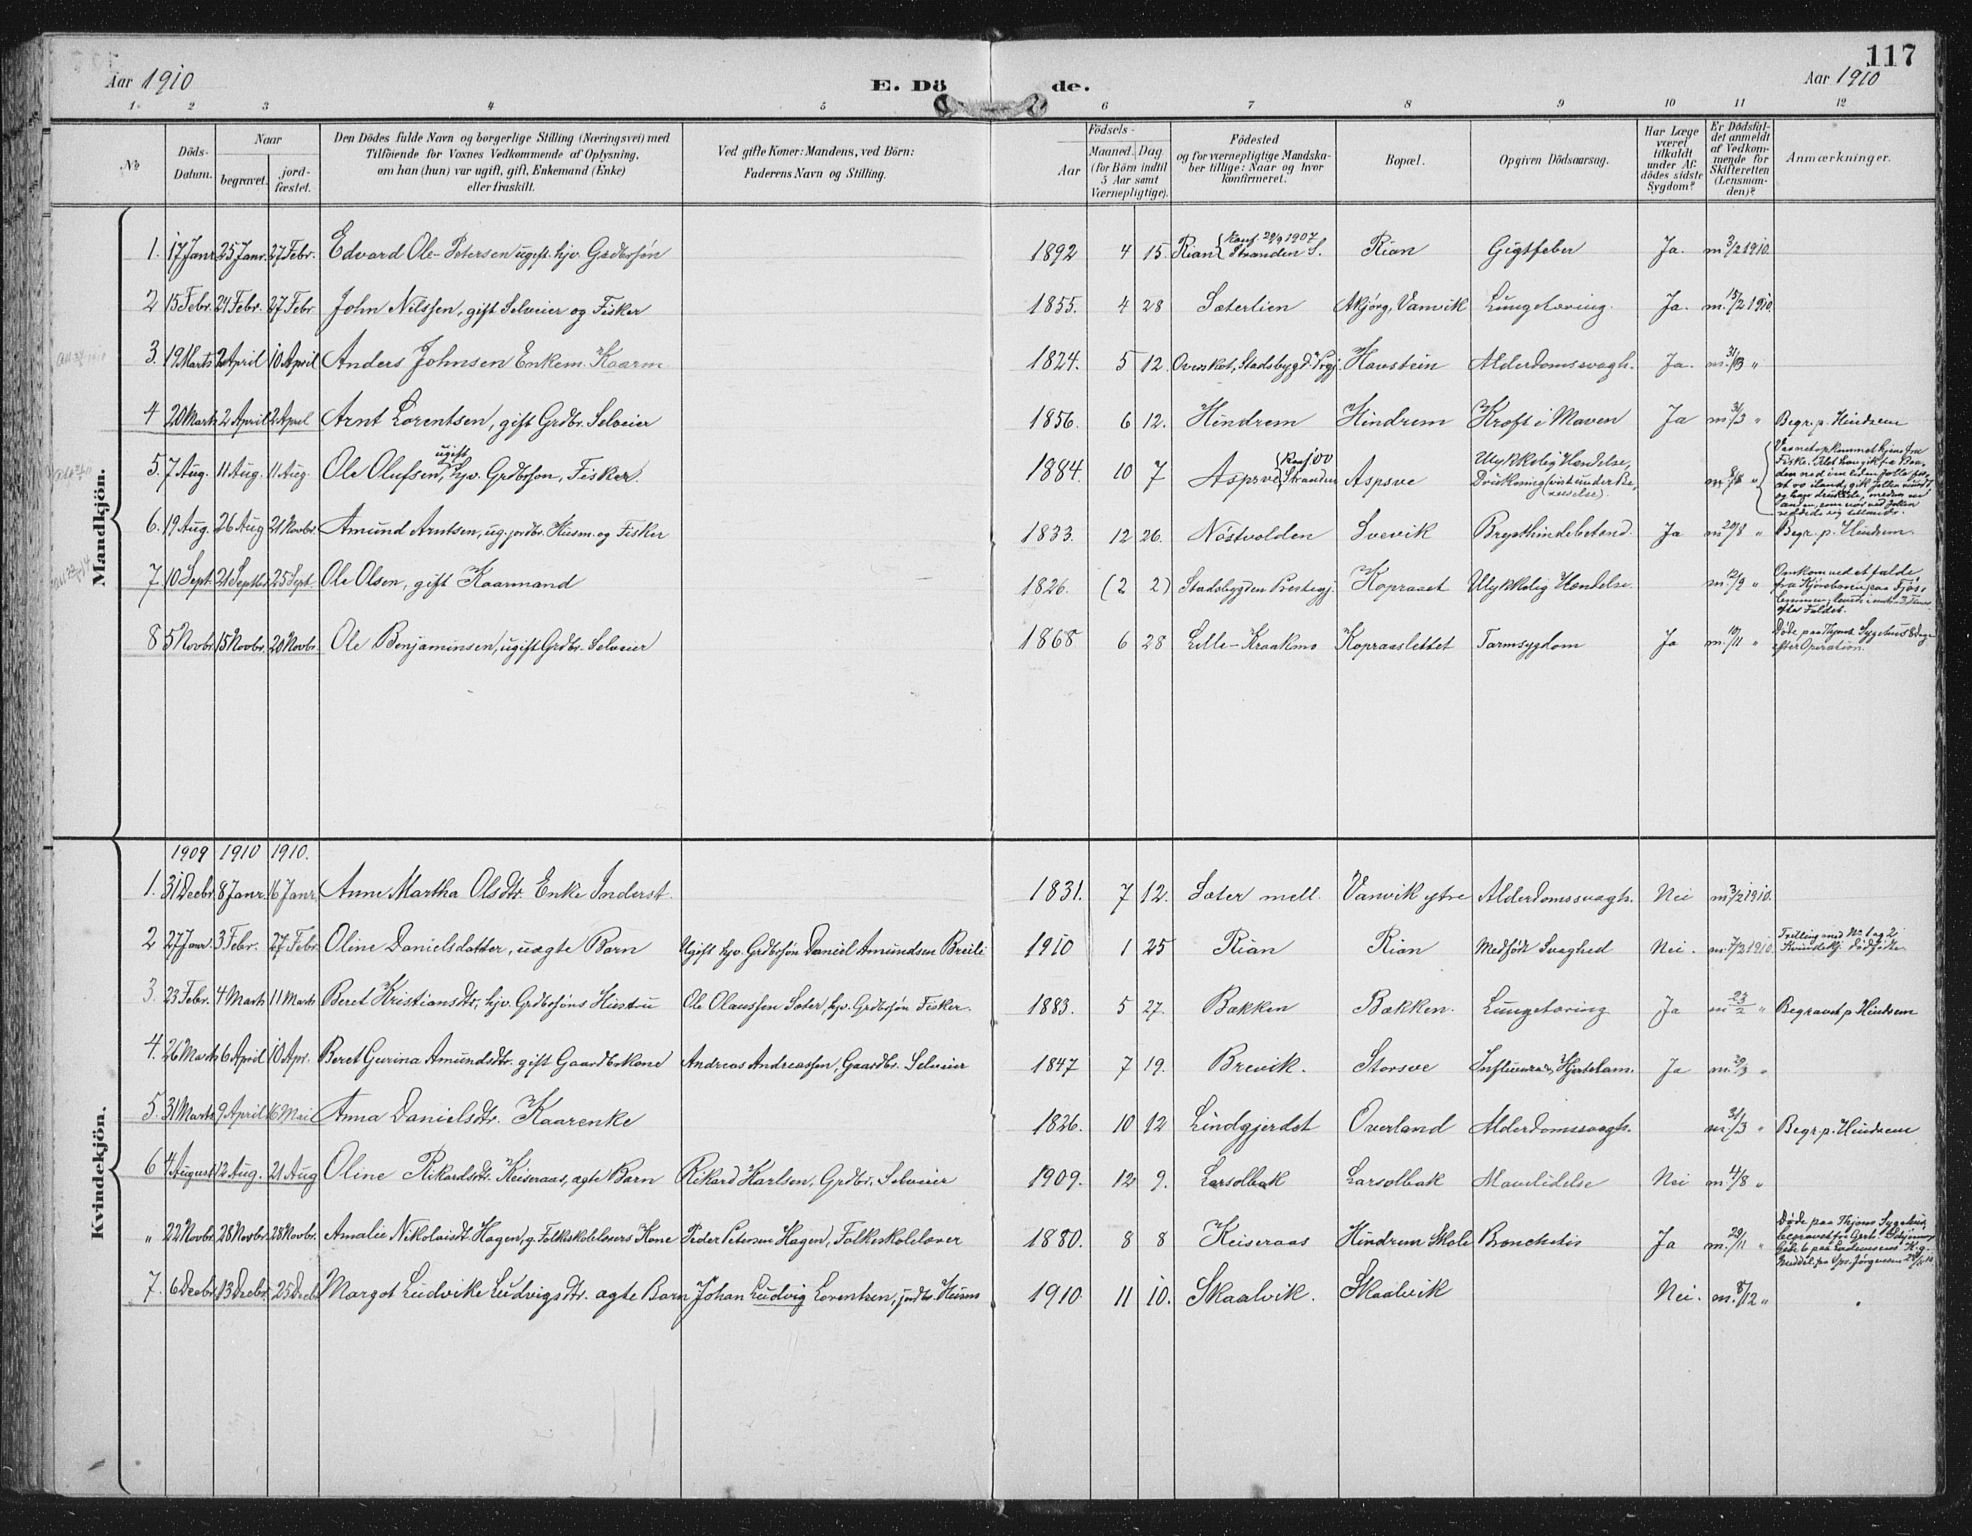 117
Aar 1910 E. Dö de. Aar 1910
1. 2 3 4 5 6 7 8 9 10 11 12
№ Döds-Datum. Naar begravet. jord-fæstet. Den Dödes fulde Navn og borgerlige Stilling (Næringsvei) med Tilföiende for Voxnes Vedkommende af Oplysning, om han (hun) var ugift, gift, Enkemand (Enke) eller fraskilt. Ved gifte Koner: Mandens, ved Börn: Faderens Navn og Stilling. Födsels- Aar Maaned. Dag (for Börn indtil 5 Aar samt Værnepligtige). Födested og for værnepligtige Mandska-ber tillige: Naar og hvor konfirmeret. Bopæl. Opgiven Dödsaarsag. Har Læge været tilkaldt under Af-dödes sidste Sygdom? Er Dödsfal-det anmeldt af Vedkom-mende for Skifteretten (Lensman-den)? Anmærkninger.
Mandkjön.
1. 17 Janr 25 Janr. 27 Febr. Edvard Ole-Petersen ugift hjv. Gdbrsøn 1892 4 15. Rian { Konf. 29/9 1907 Stranden S. Rian Gigtfeber Ja. m 3/2 1910.
2 15 Febr. 24 Febr. 27 Febr John Nilssen, gift Selveier og Fisker 1855. 4 28 Sæterlien Akjörg, Vanvik Lungetæring. Ja. m. 15/2 1910.
3. 19 Marts 2 April 10 April Anders Johnsen Enkem. Kaarm 1824. 5 12 Overskot, Stadsbygd Prgj. Havstein Alderdomssvagh. Ja. m. 31/3 "
4 20 Marts 2 April 2 April Arnt Lorentsen, gift Grdbr. Selveier 1856. 6 12. Hindrem Hindrem Kræft i Maven Ja m 31/3 " Begr. p. Hindrem
5. 7 Aug. 11 Aug. 11 Aug. Ole Olufsen, ugift, hjv. Grdbrsøn, Fisker. 1884. 10 7 Aspsve { Konf 00 Stranden Aspsve Ulykkelig Hændelse, Drukning m. 8/8 "
6. 19 Aug. 26 Aug 21 Novbr. Amund Arntsen, ug. jordbr. Husm. og Fisker 1833. 12 26. Nöstvolden Svevik Brysthindebetænd. Ja m 20/8 " Begr. p. Hindrem.
7. 10 Sept. 21 Septbr 25 Sept. Ole Olsen, gift Kaarmand 1826. (2 2) Stadsbygden Prestegj. Kopraaet Ulykkelig Hændelse. m. 12/9 " Omkom ved et falde
efter Faldet.
8 5 Novbr. 15 Novbr. 20 Novbr. Ole Benjaminsen, ugift Grdbr. Selveier 1868 6 28 Lille-Kraakmo Kopraaslettet Tarmsygdom Ja m. 10/11 " Døde paa Thjems Sygehus 8 Dage
efter Operation.
Kvindekjön.
1909 1910 1910.
1. 31 Decbr. 8 Janr. 16 Janr. Anne Martha Olsdtr. Enke Inderst. 1831. 7 12. Sæter mell. Vanvik ytre Alderdomssvagh. Nei m 3/2 1910.
2 27 Janr. 3 Febr. 27 Febr. Oline Danielsdatter, uægte Barn Ugift hjv. Grdbrsøn Daniel Amundsen Breili 1910 1 25 Rian Rian Medfödt Svaghed Nei. m. 7/2 1910. Trelling med No 1 og 2 Kvindekj. dødfødte
3. 23 Febr. 4 Marts 11 Marts Beret Kristiansdtr, hjv. Grdbrsöns Hustru Ole Olaussen Sæter, hjv. Grdbrsøn Fisker. 1883. 5 27. Bakken Bakken. Lungetæring Ja m 23/2 " Begravet p Hindrem
4. 26 Marts 6 April 10 Apr. Beret Gurina Amundsdtr. gift Gaardbrkone Andreas Andreassen, Gaardbr. Selveier 1847 7 19. Brevik. Storsve Influenza, Hjertelam. Ja m. 29/3 "
5. 31 Marts 9 April 16 Mai Anna Danielsdtr. Kaarenke 1826. 10 12 Lindgjerdet Overland Alderdomssvagh. m. 31/3 " Begr. p. Hindrem
6 4 August 12 Aug. 21 Aug Oline Rikardsdtr. Keiseraas, ægte Barn Rikard Karlsen, Grdbr. Selveier 1909. 12 9. Larsolbak Larsolbak Mavelidelse Nei m. 4/8 "
" 22 Novbr. 28 Novbr. 28 Novbr. Amalie Nikolaisdt. Hagen, g. Folkeskolelærers Kone Peder Petersen Hagen, Folkeskolelærer 1880. 8 8 Keiseraas Hindrem Skole Bronchitis Ja m. 29/11 " Døde paa Thjems Sygehus,
7. 6 Decbr. 13 Decbr. 25 Decb. Margot Ludvike Ludvigsdtr. ægte Barn Johan Ludvig Lorentsen, jordbr. Husm 1910 11 10. Skaalvik. Skaalvik Nei. m. 8/12 "